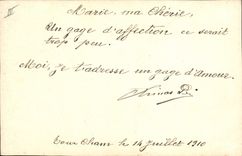 Marie, ma Chérie,
Un gage d'affection ce serait
trop peu.
Moi, je t'adresse un gage d'Amour.
Tour Cham le 14 Juillet 1910